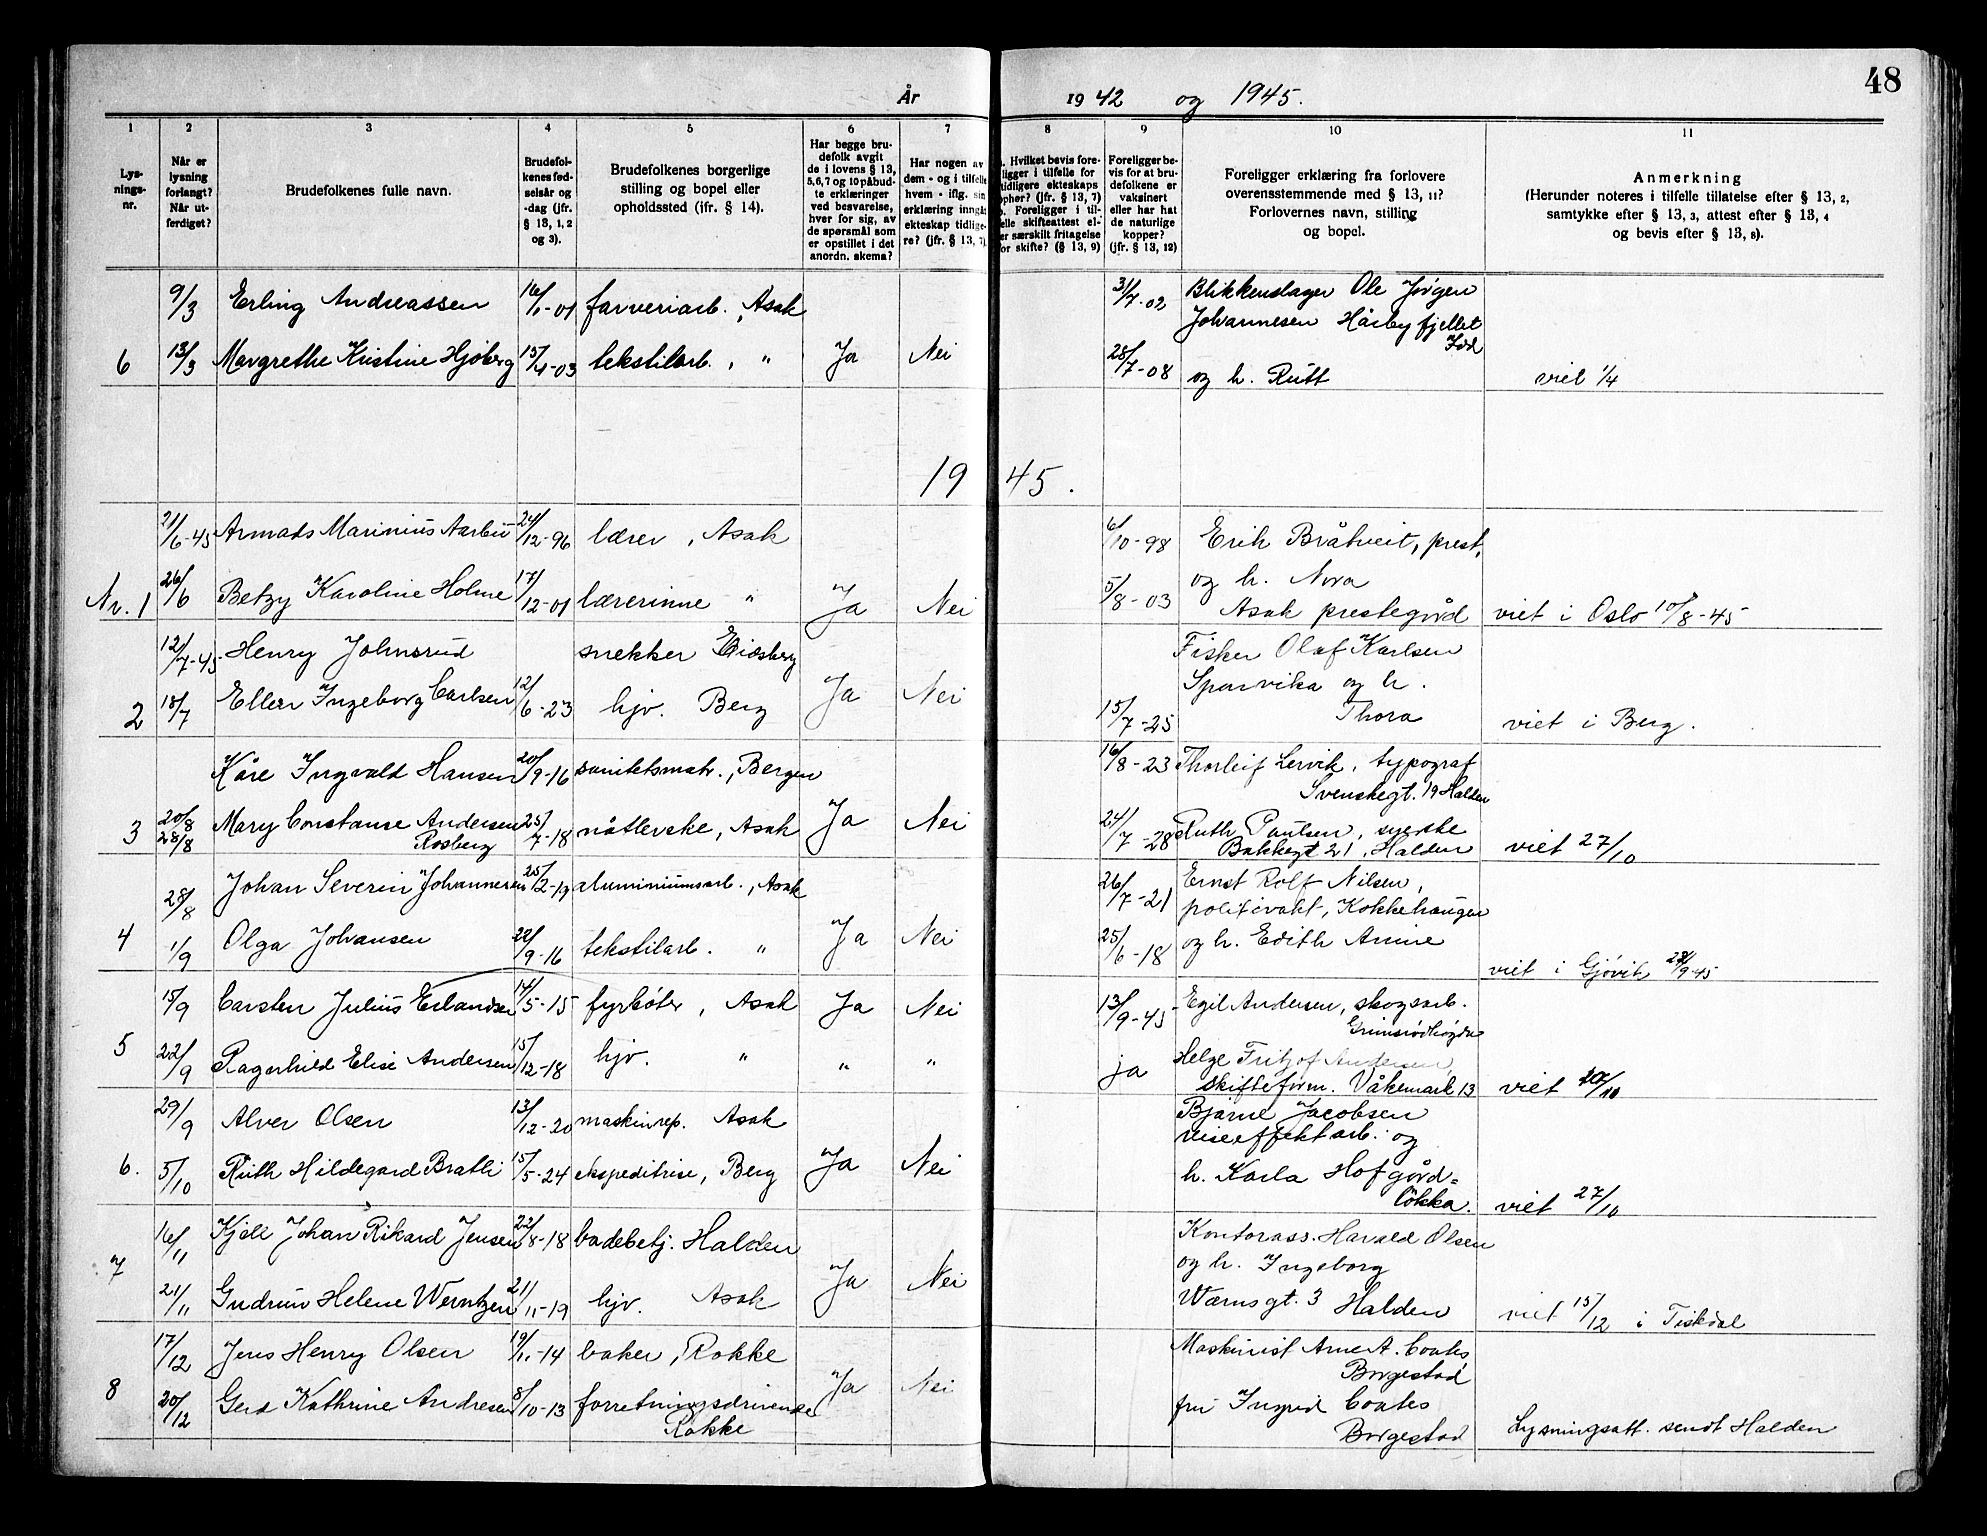 48
År 1942 og 1945.
1 2 3 4 5 6 7 8 9 10 11
Lys-
nings-
nr.
Når er
lysning
forlangt?
Når ut-
ferdiget?
Brudefolkenes fulle navn.
Brudefol-
kenes fød-
selsår og
-dag (jfr.
§ 13, 1, 2
og 3).
Brudefolkenes borgerlige
stilling og bopel eller
opholdssted (ifr. § 14).
Har begge bru-
defolk avgit
de i lovens § 13,
5,6,7 og 10 påbud-
te erklæringer
ved besvarelse,
hver for sig, av
de spørsmål som
er opstillet i det
anordn. skema?
Har nogen av
dem - og i tilfelle
hvem - iflg. sin
erklæring inngått
ekteskap tidlige-
re? (jfr. § 13, 7)
Hvilket bevis fore-
ligger i tilfelle for
tidligere ekteskaps
ophør? (jfr. § 13, 7)
Foreligger i til-
elle skifteattest el-
er særskilt fritagelse
for skifte? (§ 13, 9)
Foreligger be-
vis for at bru-
defolkene er
vaksinert
eller har hat
de naturlige
kopper?
(jfr. § 13, 12)
Foreligger erklæring fra forlovere
overensstemmende med § 13, 11?
Forlovernes navn, stilling
og bopel.
Anmerkning
(Herunder noteres i tilfelle tillatelse efter § 13, 2,
samtykke efter § 13, 3, attest efter § 13, 4
og bevis efter § 13, 8).
9/3 Erling Andreassen 16/1-01 farveriarb., Asak 31/7-02 Blikkenslager Ole Jørgen
Johannesen Hårbyfjellet
Idd
6 13/3 Margrethe Kristine Hjøberg 15/4-03 tekstilarb., " Ja Nei 28/7-08 og h. Rutt viet 1/4
1945.
21/6-45 Marinius 24/12-96 lærer, Asak 6/10-98 Erik Bråtveit, prest,
og h. Nora
Nr. 1 26/6 Betzy Karoline Holme 17/12-01 lærerinne " Ja Nei 5/8-03 Asak prestegård viet i Oslo 10/8-45
12/7-45 Henry Johnsrud snekker Eidsberg Fisker Olaf Karlsen
Sponvika og h.
2 18/7 Ellen Ingeborg Carlsen 12/6-23 hjv. Berg Ja Nei 15/7-25 Thora viet i Berg.
Kåre Ingvald Hansen 20/9-16 sanitetsmatr., Bergen 16/8-23 Thorleif Lervik, typograf
Svenskegt. 19 Halden
3 20/8 28/8 Mary Constanse Andersen 25/7-18 nåtlerske, Asak Ja Nei 24/7-28 Ruth Paulsen, syerske
Rosberg Bakkegt 21, Halden viet 27/10
28/8 Johan Severin Johannesen 25/2-19 aluminiumsarb., Asak 26/7-21 Ernst Rolf Nilsen,
politivakt, Kokkehaugen
4 1/9 Olga Johansen 22/9-16 tekstilarb. " Ja Nei 25/6-18 og h. Edith Amine
viet i Gjøvik
15/9 Carsten Julius Erlandsen 14/5-15 fyrbøter, Asak Ja Nei 13/9-45 Egil Andersen, skogsarb.
Grimsrødhøgda
5 22/9 Ragnhild Elise Andersen 15/12-18 hjv. " " " ja Helge Fritjof Andersen,
skifteform. Våkemark 13 viet 20/10
29/9 Alver Olsen 13/12-20 maskinrep. Asak Bjarne Jacobsen
og
6. 5/10 Ruth Hildegard Brathi 15/5-24 ekspeditrise, Berg Ja Nei h. Karla Hofgård=
løkka. viet 27/10
16/11 Kjell Johan Rikard Jensen 22/8-18 badebetj. Halden Kontorass. Harald Olsen
og h. Ingeborg
7 21/11 Gudrun Helene Werntzen 21/11-19 hjv. Asak Ja Nei Wærnsgt. 3 Halden viet 15/12 i Tistedal
17/12 Jens Henry Olsen 19/11-14 baker, Rokke Maskinist Arne A. Coates
Borgestad
8 20/12 Gerd Kathrine Andresen 8/10-13 forretningsdrivende Ja Nei fru Ingrid Coates
Rokke Borgestad Lysningsatt. sendt Halden